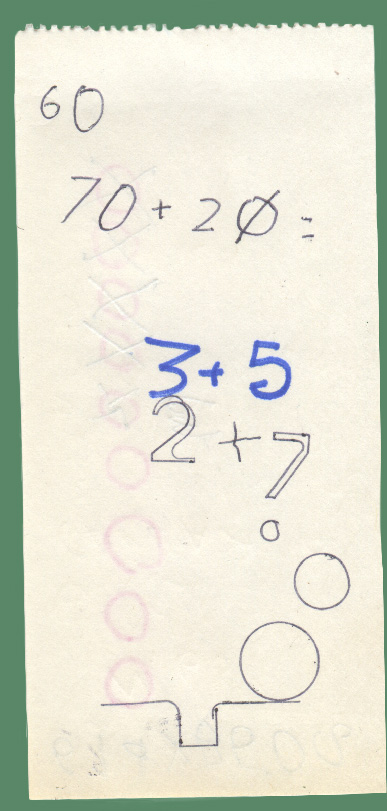 60
70+20=
3+5
2+7